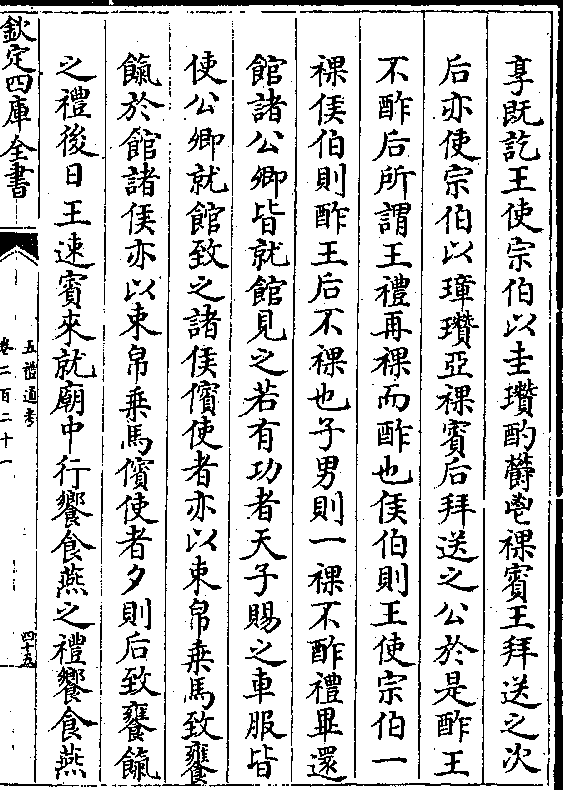 享既訖王使宗伯以圭瓚酌鬱鬯祼賓王拜送之次
后亦使宗伯以璋瓚亞祼賓后拜送之公於是酢王
不酢后所謂王禮再祼而酢也侯伯則王使宗伯一
祼侯伯則酢王后不祼也子男則一祼不酢禮畢還
館諸公卿皆就館見之若有功者天子賜之車服皆
使公卿就館致之諸侯儐使者亦以束帛乗馬致饔
餼於館諸侯亦以束帛乗馬儐使者夕則后致饔餼
之禮後日王速賓來就廟中行饗食燕之禮饗食燕
欽定四庫全書
五禮通考
卷二百二十一
四十五